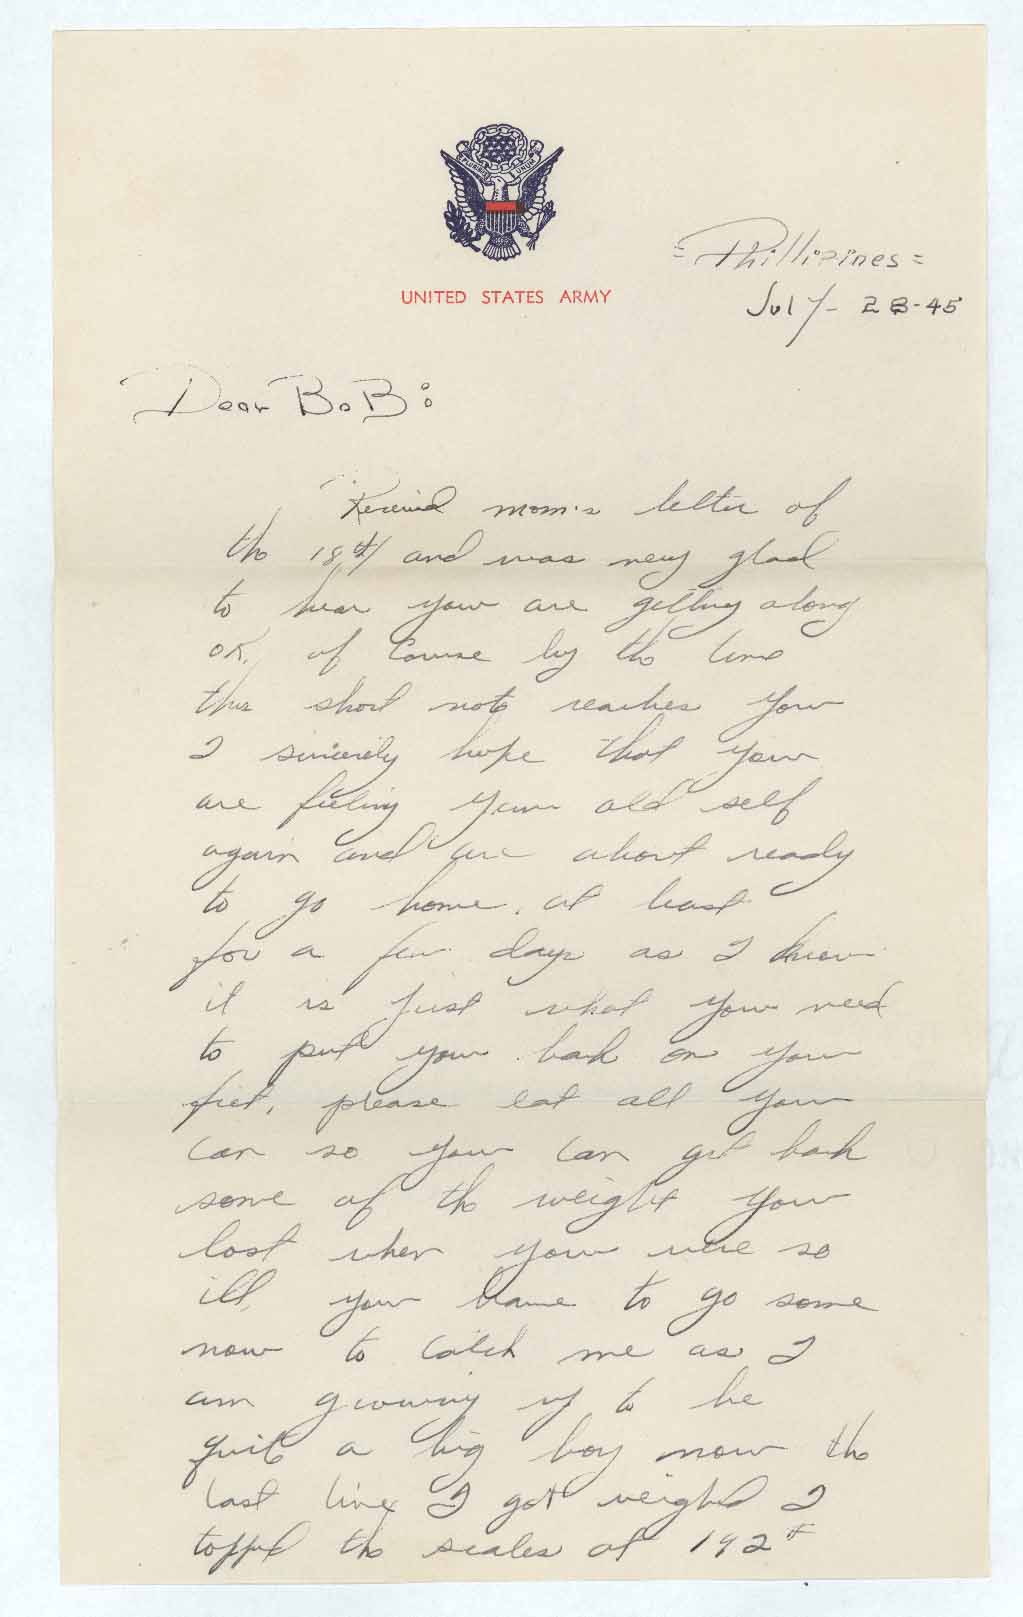 E PLURIBUS UNUM
UNITED STATES ARMY
= Phillipines =
July - 28-45
Dear BoB:
Received mom's letter of
the 18th and was very glad
to hear you are getting along
OK, of course by the time
this short note reaches you
I sincerely hope that you
are feeling your old self
again and are about ready
to go home, at least
for a few days as I know
it is just what you need
to put you back on your
feet, please eat all you
can so you can get back
some of the weight you
lost when you were so
ill, you have to go some
now to catch me as I
am growing up to be
quite a big boy now the
last time I got weighed I
topped the scales at 192#